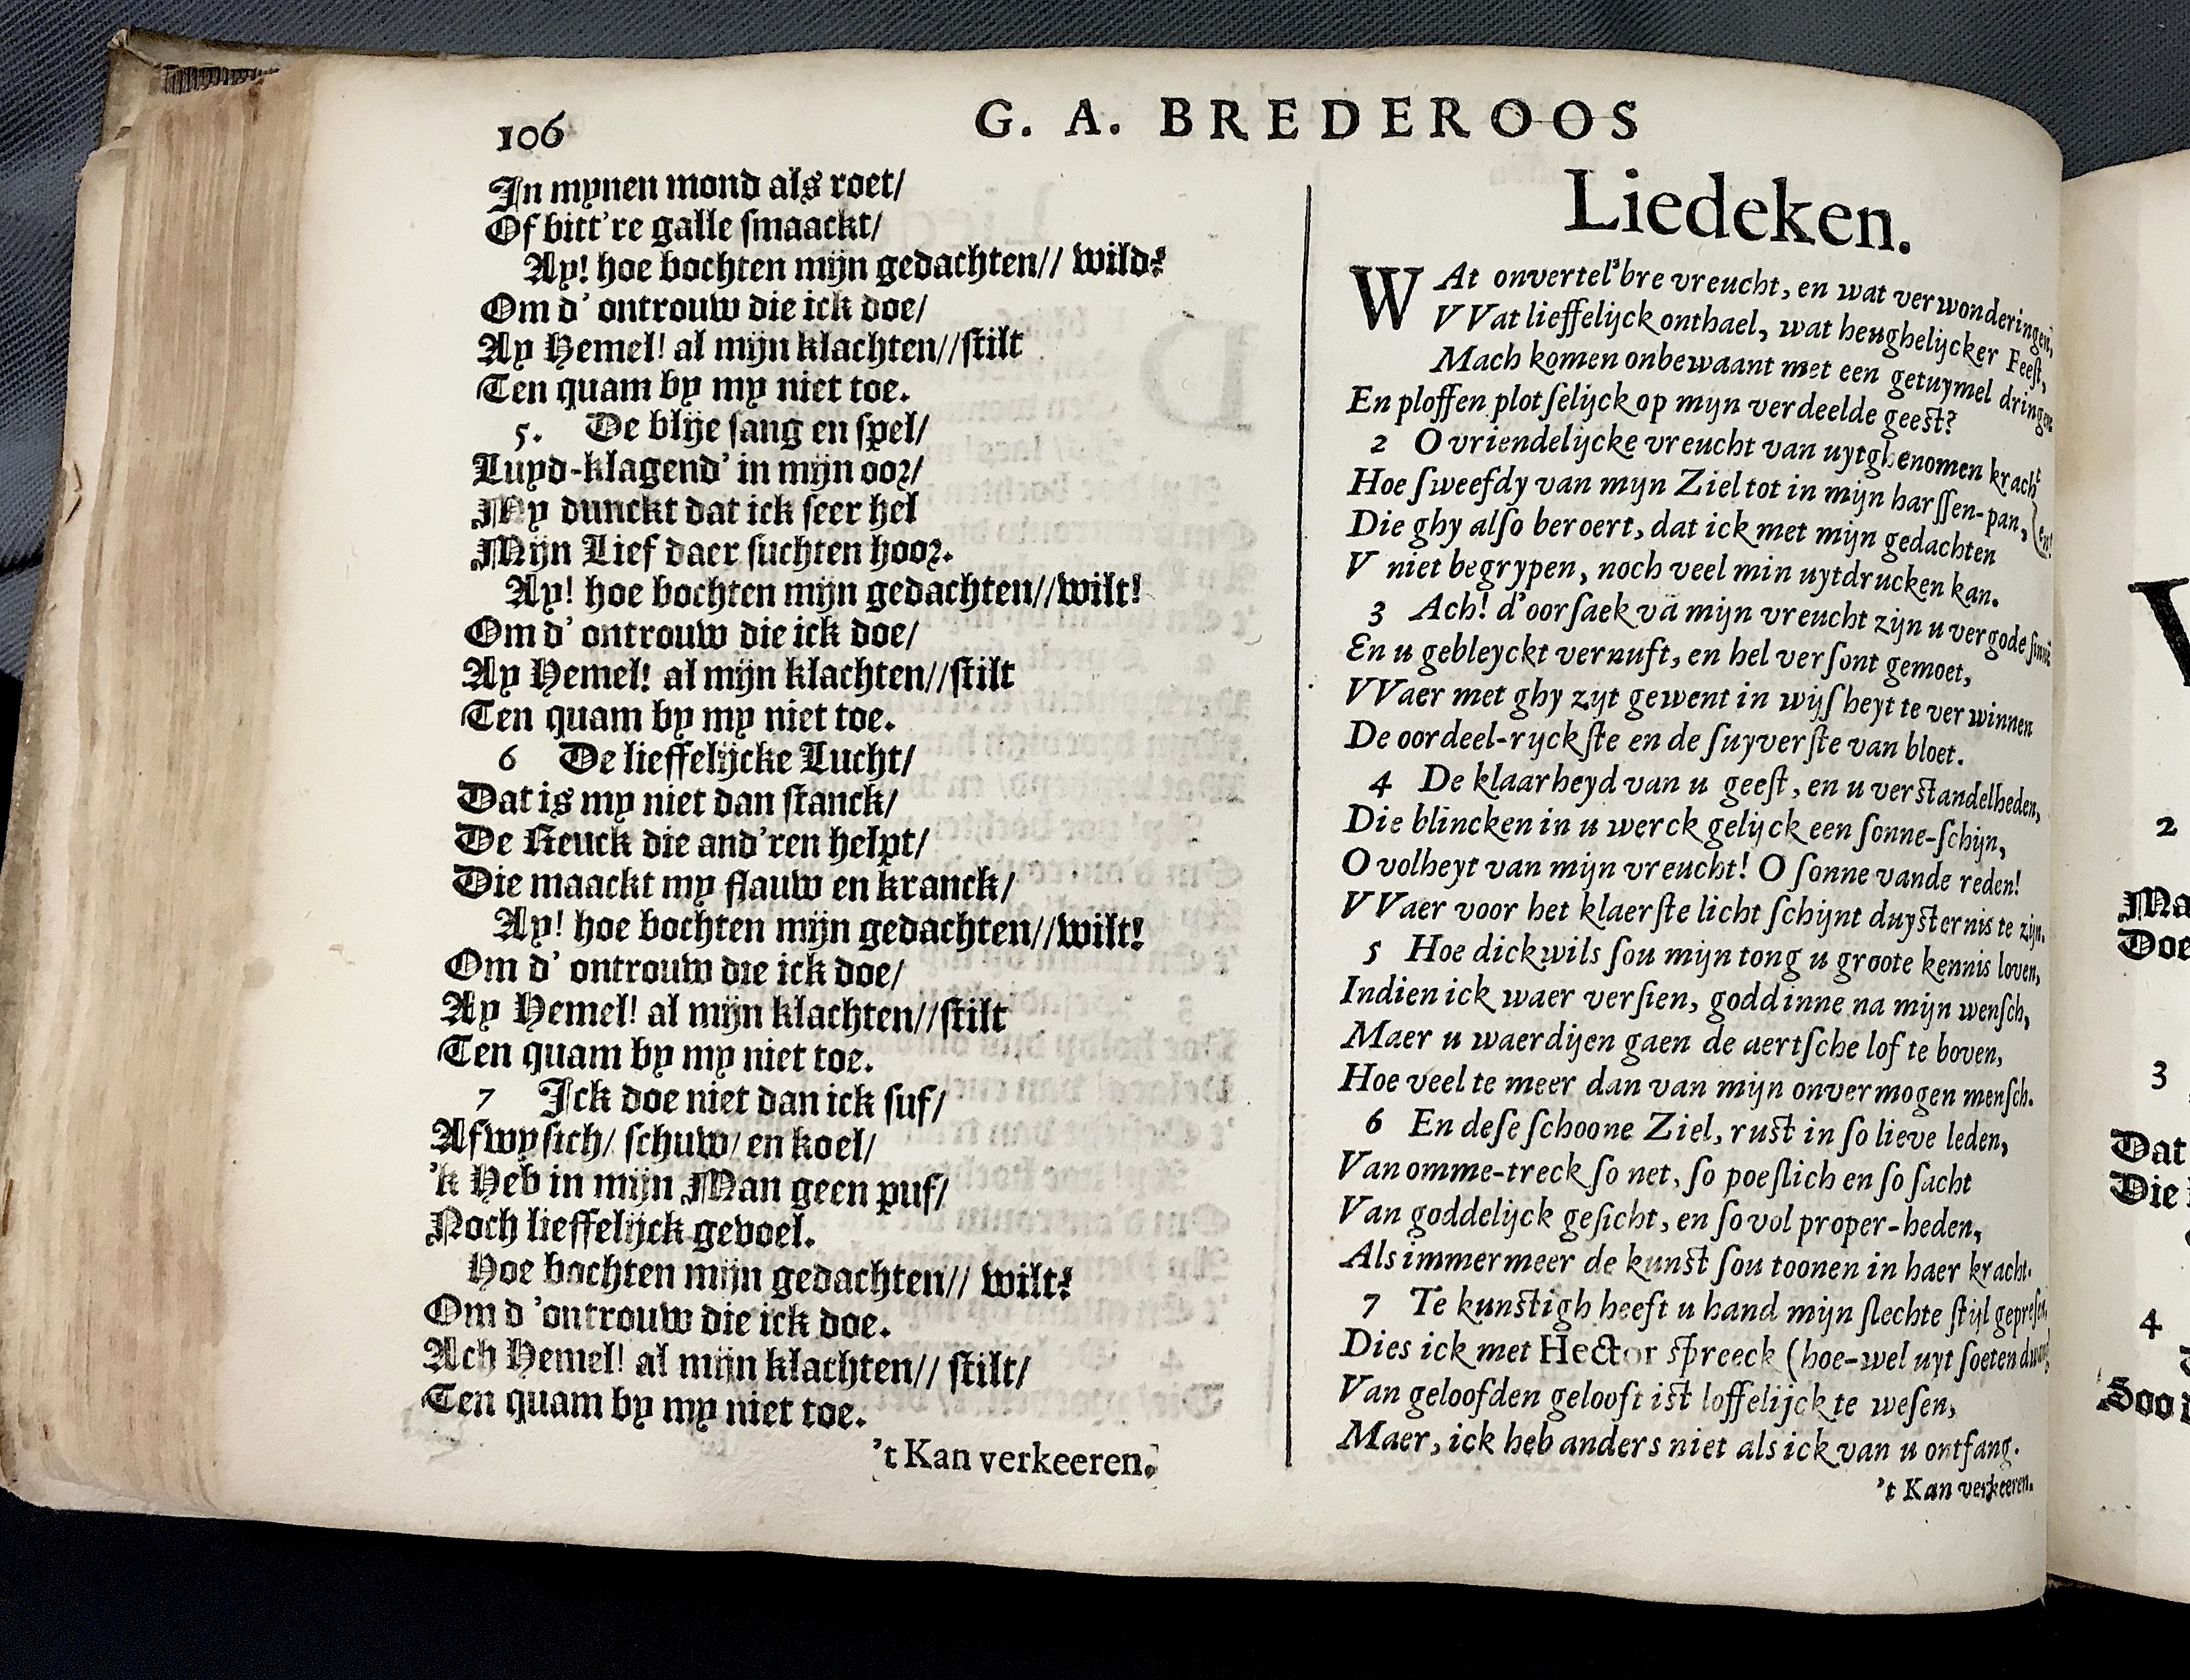 106
G. A. BREDEROOS
In mynen mond als roet/
Of bitt're galle smaackt/
Ay! hoe bochten mijn gedachten// wild?
Om d' ontrouw die ick doe/
Ay Hemel! al mijn klachten//stilt
Ten quam by my niet toe.
5. De blije sang en spel/
Luyd-klagend' in mijn oor/
My dunckt dat ick seer hel
Mijn Lief daer suchten hoor.
Ay! hoe bochten mijn gedachten//wilt!
Om d' ontrouw die ick doe/
Ay Hemel! al mijn klachten//stilt
Ten quam by my niet toe.
6 De lieffelijcke Lucht/
Dat is my niet dan stanck/
De Reuck die and'ren helpt/
Die maackt my flauw en kranck/
Ay! hoe bochten mijn gedachten//wilt!
Om d' ontrouw die ick doe/
Ay Hemel! al mijn klachten//stilt
Ten quam by my niet toe.
7 Ick doe niet dan ick suf/
Afwysich/ schuw/ en koel/
'k Heb in mijn Man geen puf/
Noch lieffelijck gevoel.
Hoe bochten mijn gedachten// wilt?
Om d 'ontrouw die ick doe.
Ach Hemel! al mijn klachten// stilt/
Ten quam by my niet toe.
't Kan verkeeren.
Liedeken.
WAt onvertel'bre vreucht, en wat verwonderingen,
VVat lieffelijck onthael, wat heughelijcker Feest,
Mach komen onbewaant met een getuymel dringen
En ploffen plotselijck op mijn verdeelde geest?
2 O vriendelijcke vreucht van uytghenomen kracht
Hoe sweefdy van mijn Ziel tot in mijn harssen-pan, (en!
Die ghy also beroert, dat ick met mijn gedachten
V niet begrypen, noch veel min uytdrucken kan.
3 Ach! d'oorsaek vā mijn vreucht zijn u vergode
En u gebleyckt vernuft, en hel versont gemoet,
VVaer met ghy zijt gewent in wijsheyt te verwinnen
De oordeel-ryckste en de suyverste van bloet.
4 De klaarheyd van u geest, en u verstandelheden,
Die blincken in u werck gelijck een sonne-schijn,
O volheyt van mijn vreucht! O sonne vande reden!
VVaer voor het klaerste licht schijnt duysternis te zijn.
5 Hoe dickwils sou mijn tong u groote kennis loven,
Indien ick waer versien, goddinne na mijn wensch,
Maer u waerdijen gaen de aertsche lof te boven,
Hoe veel te meer dan van mijn onvermogen mensch.
6 En dese schoone Ziel, rust in so lieve leden,
Van omme-treck so net, so poeslich en so sacht
Van goddelijck gesicht, en so vol proper-heden,
Als immermeer de kunst sou toonen in haer kracht.
7 Te kunstigh heeft u hand mijn slechte stijl
Dies ick met Hector spreeck (hoe-wel uyt soeten
Van geloofden gelooft ist loffelijck te wesen,
Maer, ick heb anders niet als ick van u ontfang.
't Kan verkeeren.
2
Ma
Doe
3
Dat
Die
4
Soo